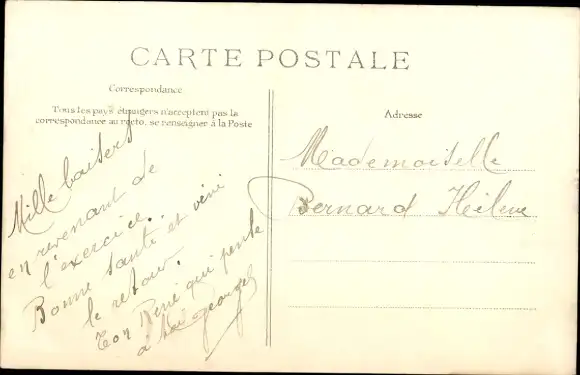 CARTE POSTALE
Correspondance
Tous les pays étrangers n'acceptent pas la
correspondance au recto, se renseigner à la Poste
Adresse
Mille baisers
en revenant de
l'exercice.
Bonne santé et vive
le retour.
Ton René qui pense
à toi
Mademoiselle
Bernard Hélène